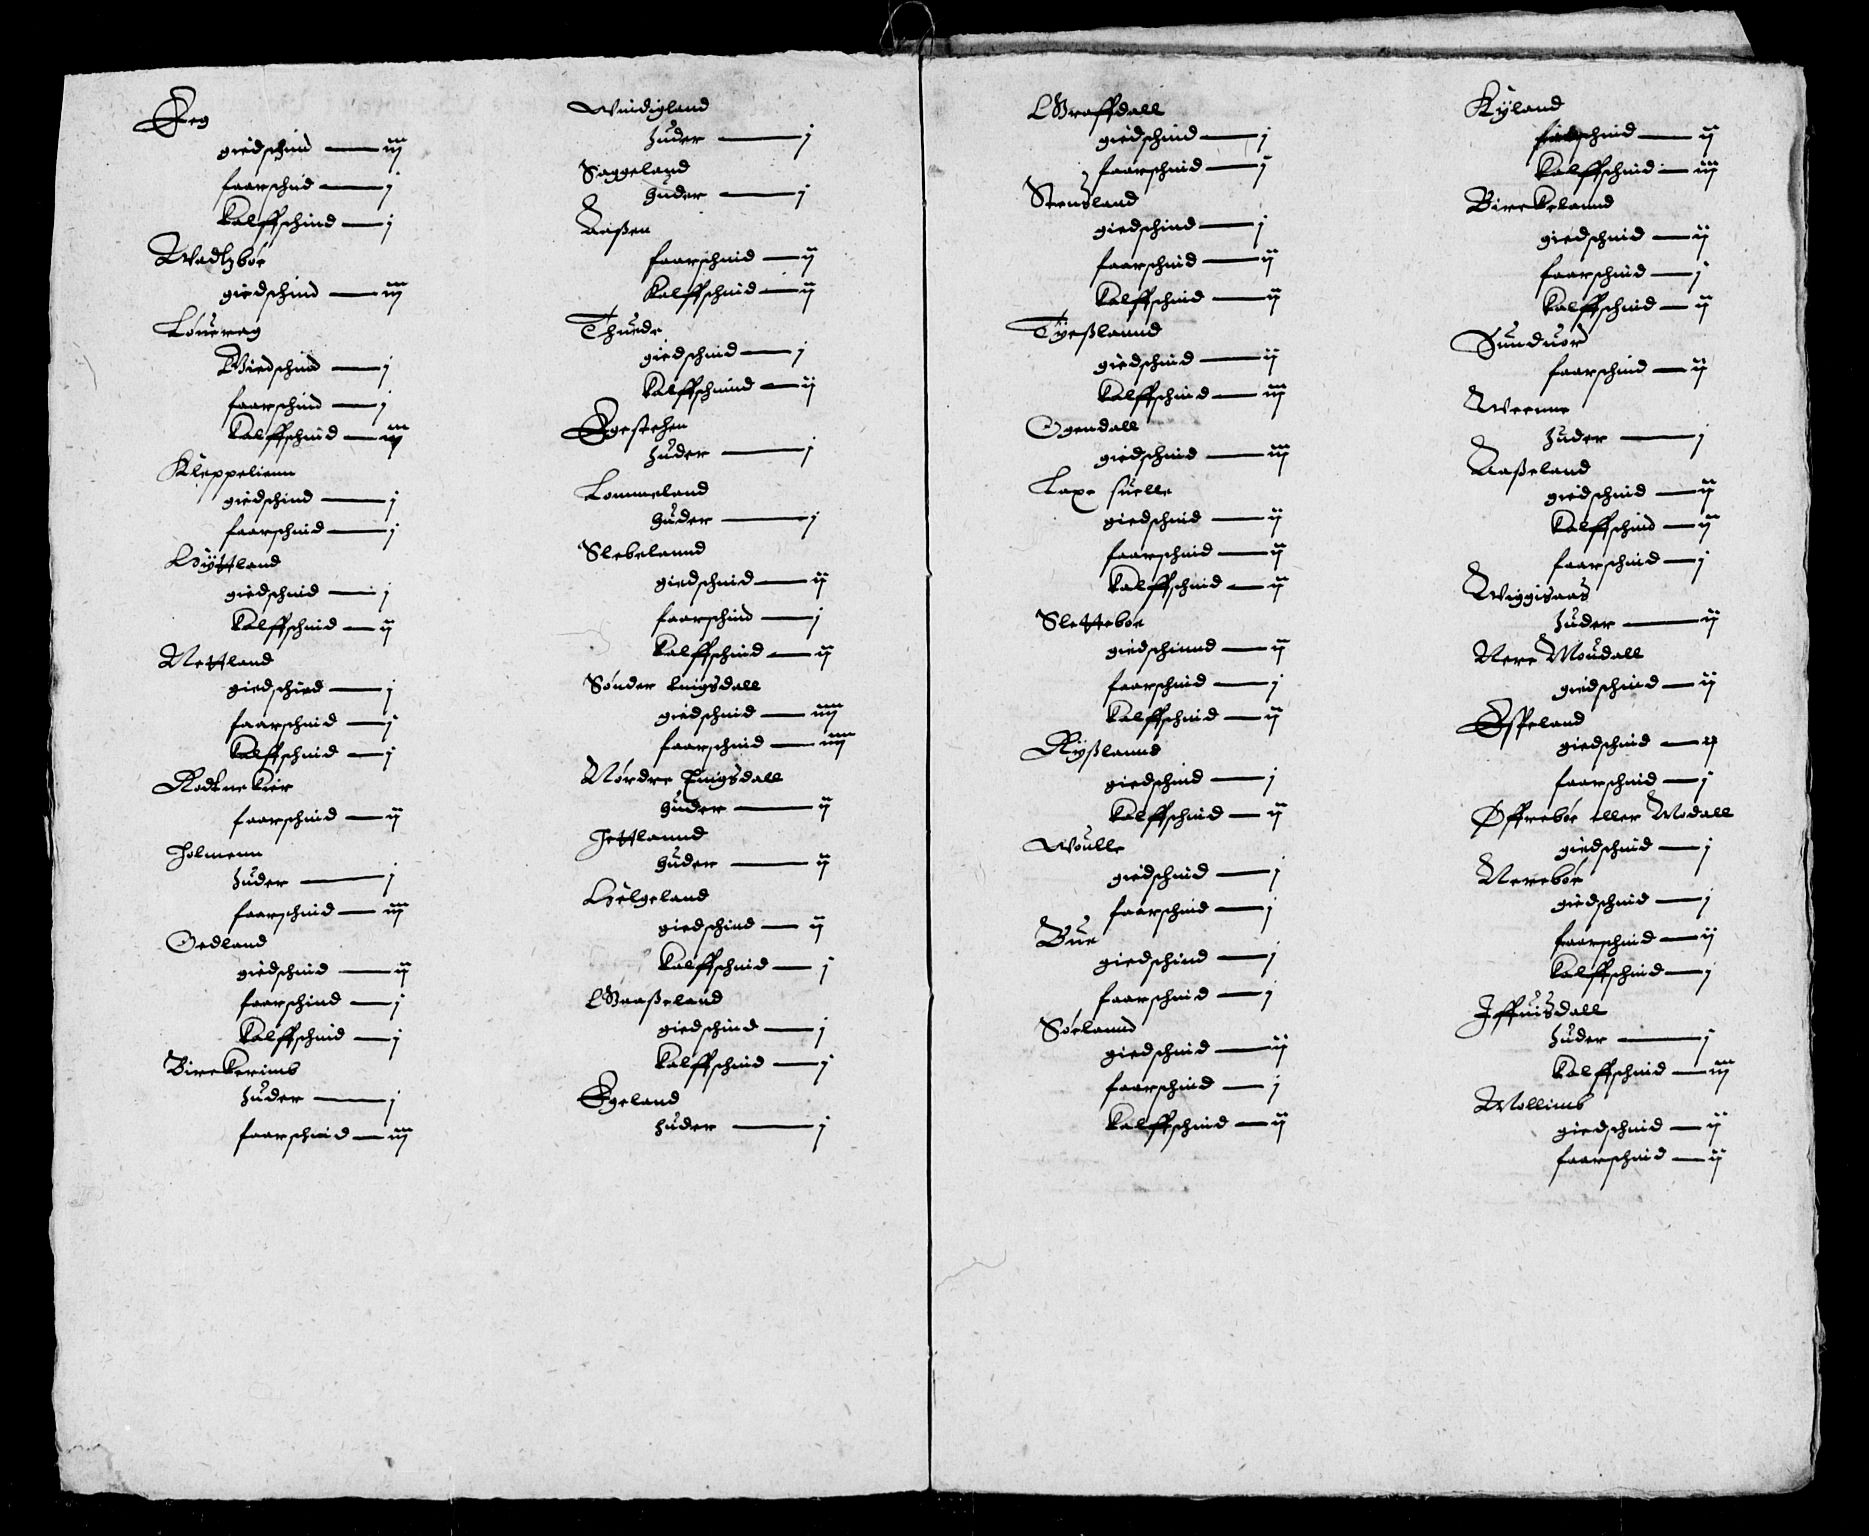 Eeg
giedschind — iij
faarschind — j
Kalffschind — j
Wadtzbøe
giedschind — iij
Løuerag
Giedschind — j
faarschind — j
Kalffschind — iij
Kleppelienn
giedschind — j
faarschind — j
Hÿttland
giedschind — j
Kalffschind — ij
Nettland
giedschied — j
faarschind — j
Kalffschind — j
Rodtne Kier
faarschind — ij
Holmenn
huder — j
faarschind — iij
Oedland
giedschind — ij
faarschind — j
Kalffschind — j
Birckerimb
huder — j
faarschind — iij
Windigland
huder — j
Saggeland
huder — j
Aaßen
faarschind — ij
Kalffschind — ij
Thuedt
giedschind — j
Kalffschinnd — ij
Egestehen
huder — j
Lommeland
huder — j
Slebelannd
giedschind — ij
faarschind — j
Kalffschind — ij
Sønder Lnigsdall
giedschind — iiij
faarschind — iiij
Nørdre Lnigsdall
huder — ij
Jettlannd
huder — ij
Helgeland
giedschind — ij
Kalffschind — j
Graaßeland
giedschind — j
Kalffschind — j
Egeland
huder — j
Graffdall
giedschind — j
faarschind — j
Stensland
giedschind — j
faarschind — ij
Kalffschind — ij
Tÿeßlannd
giedschind — ij
Kalffschind — iij
Ogendall
giedschind — iij
Laxe suelle
giedschind — ij
faarschind — ij
Kalffschind — ij
Slettebøe
giedschinnd — ij
faarschind — j
Kalffschind — ij
Rÿßlannd
giedschind — j
Kalffschind — ij
Woulle
giedschind — j
faarschind — j
Bue
giedschind — j
faarschind — j
Sørlannd
giedschind — ij
faarschind — j
Kalffschind — ij
Kÿland
schind — ij
Kalffschind — iij
Birckelannd
giedschind — ij
faarschind — j
Kalffschind — ij
Sunduor
faarschind — ij
Aurenne
huder — j
Aaßeland
giedschind — ij
Kalffschind — ij
faarschind — j
Wiggisaas
huder — ij
Nere Moudall
giedschind — ij
Espeland
giedschind — ij
faarschind — j
Øffrebøe eller Modall
giedschind — j
Nerebøe
giedschind — j
faarschind — ij
Kalffschind — j
Iffuisdall
huder — j
Kalffschind — iij
Mollimb
giedschind — ij
faarschind — ij